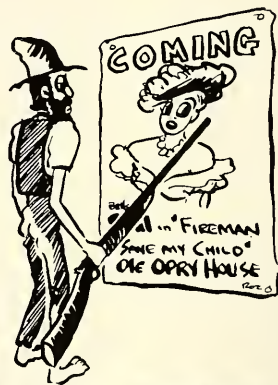 COMING
in "FIREMAN
SAVE MY CHILD"
OLE OPRY HOUSE